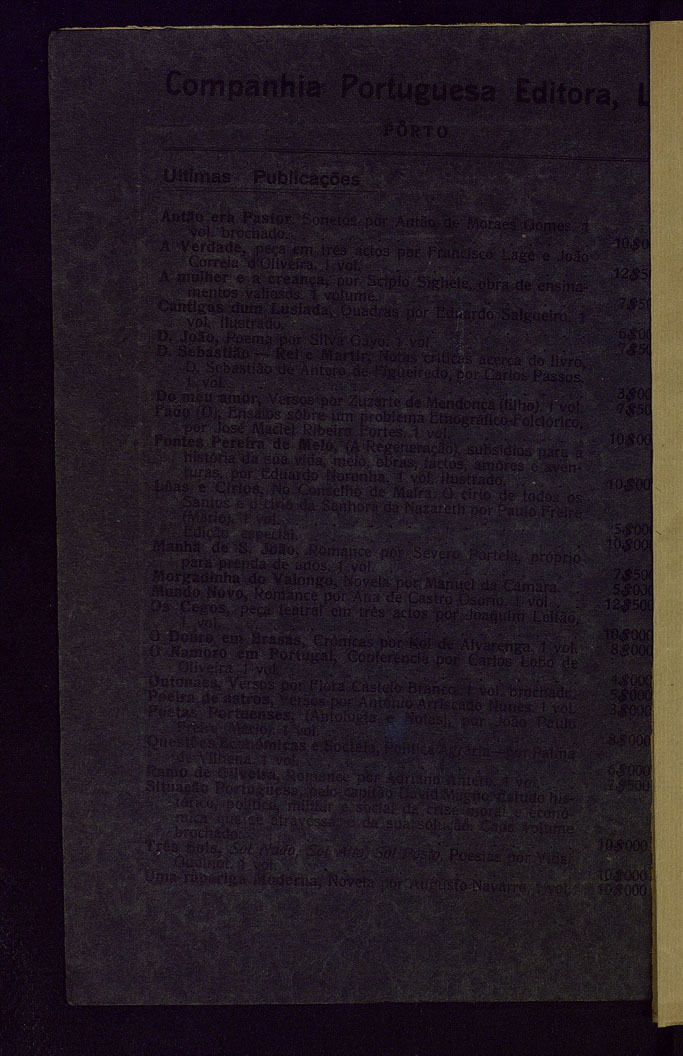 Companhia Portuguesa Editora, L
PÔRTO
Ultimas Publicações
Antão era Pastor, Sonetos por Antão de Moraes Gomes. 1
vol. brochado.
A Verdade, peça em três actos por Francisco Lage e João
Correia d'Oliveira. 1 vol.
A mulher e a creança, por Scipio Sighele, obra de ensina-
mentos valiosos. 1 volume.
Cantigas dum Lusiada, Quadras por Eduardo Salgueiro, 1
vol. ilustrado.
D. João, Poema por Silva Gayo. 1 vol
D. Sebastião — Rei e Martir, Notas críticas acerca do livro,
D. Sebastião de Antero de Figueiredo, por Carlos Passos.
1 vol.
Do meu amor, Versos por Zuzarte de Mendonça (filho). 1 vol.
Fado (O), Ensaios sôbre um problema Etnográfico-Folclórico,
por José Maciel Ribeiro Fortes. 1 vol.
Fontes Pereira de Melo, (A Regeneração), subsídios para a
história da sua vida, meio, obras, factos, amores e aven-
turas, por Eduardo Noronha. 1 vol. ilustrado.
Lôas e Cirios, No Conselho de Mafra. O cirio de todos os
Santos e o cirio da Senhora da Nazareth por Paulo Freire
(Mário). 1 vol.
Edição especial.
Manhã de S. João, Romance por Severo Portela, próprio
para prenda de anos. 1 vol.
Morgadinha do Valongo, Novela por Manuel da Câmara.
Mundo Novo, Romance por Ana de Castro Osorio. 1 vol.
Os Cegos, peça teatral em três actos por Joaquim Leitão,
1 vol.
O Douro em Brasas, Crónicas por Kol de Alvarenga. 1 vol.
O Ramoro em Portugal, Conferencia por Carlos Lobo de
Oliveira. 1 vol.
Outonaes, Versos por Flora Castelo Branco. 1 vol. brochado.
Poeira de astros, Versos por António Arriscado Nunes. 1 vol.
Poetas Portuenses, (Antologia e Notas), por João Paulo
Freire (Mário). 1 vol.
Questões Económicas e Sociais, Política Agrária—por Palma
de Vilhena. 1 vol.
Ramo de Oliveira, Romance por Adriano Antero. 1 vol.
Situação Portuguesa, pelo capitão David Magno. Estudo his-
tórico, político, militar e social da crise moral e econo-
mica que se atravessa e da sua solução. Cada volume
brochado.
Três Sois, Sol Nado, Sol Alto, Sol Posto, Poesias por Vidal
Oudinot. 1 vol.
Uma rapariga moderna, Novela por Augusto Navarro, 1 vol.
10$0
12$5
7$50
6$00
7$50
3$00
7$50
10$00
10$00
5$000
10$000
7$500
5$000
12$500
10$000
8$000
4$000
5$000
3$000
8$000
6$000
7$500
10$000
10$000
10$000